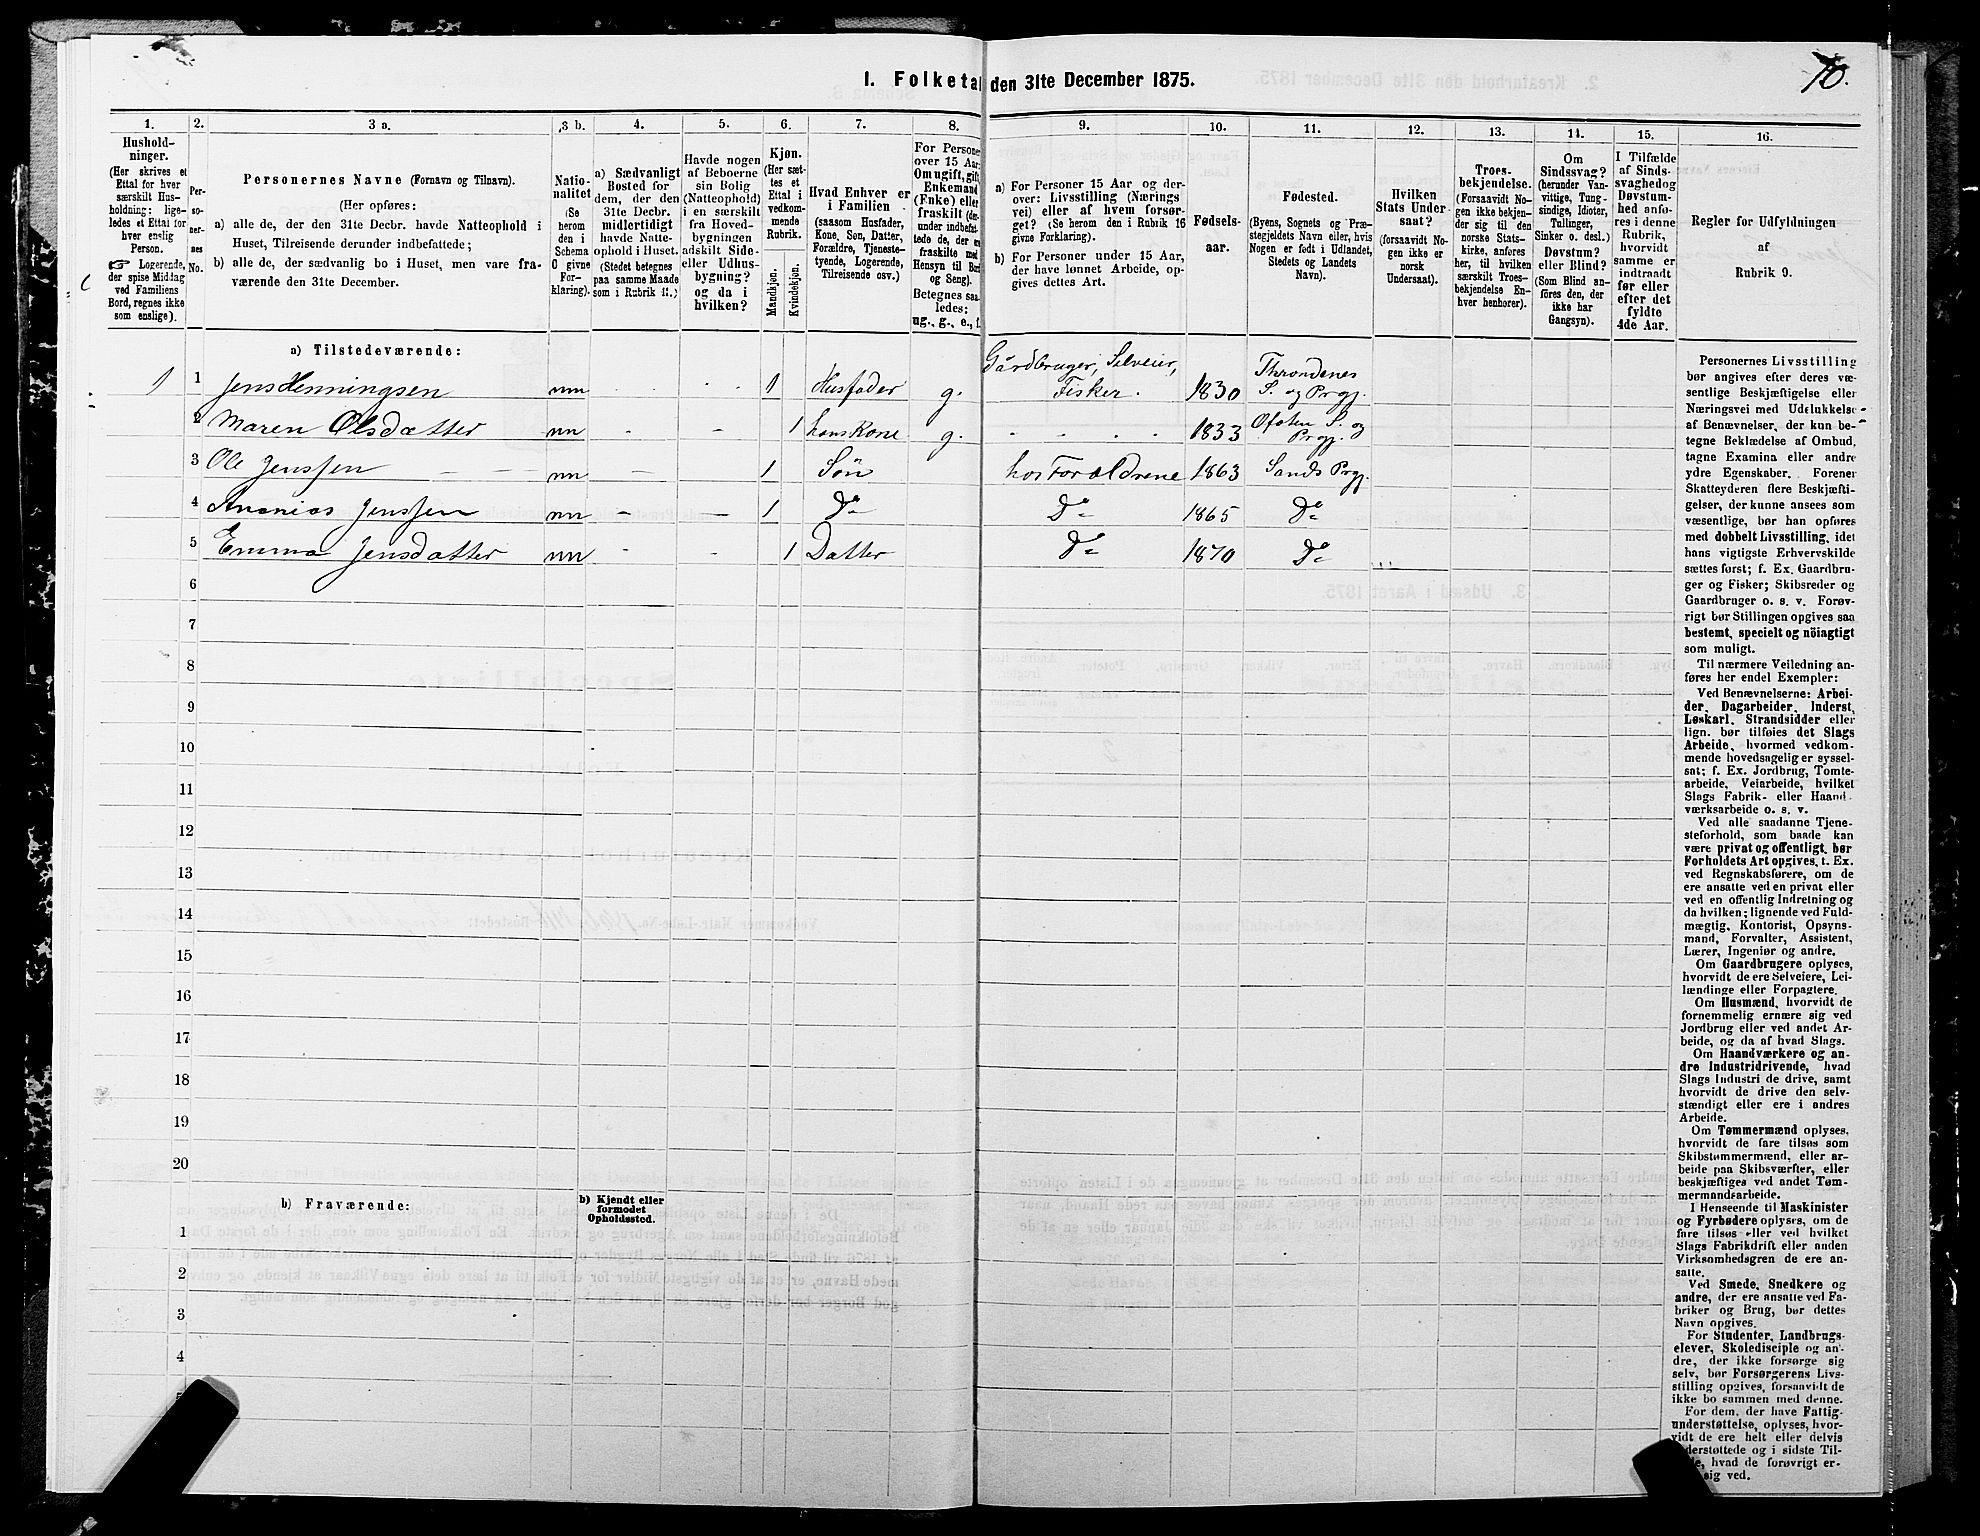 70.
1. Folketal den 31te December 1875.
1. 2. 3 a. 3 b. 4. 5. 6. 7. 8. 9. 10. 11. 12. 13. 14. 15. 16.
Hushold-
ninger.
(Her skrives et
Ettal for hver
særskilt Hus-
holdning; lige-
ledes et Ettal for
hver enslig
Person.
☞ Logerende,
der spise Middag
ved Familiens
Bord, regnes ikke
som enslige).
Per-
so-
ner-
nes
No.
Personernes Navne (Fornavn og Tilnavn).
(Her opføres:
a) alle de, der den 31te Decbr. havde Natteophold i
Huset, Tilreisende derunder indbefattede;
b) alle de, der sædvanlig bo i Huset, men vare fra-
værende den 31te December.
Natio-
nalitet
(Se
herom
den i
Schema
C givne
For-
klaring).
a) Sædvanligt
Bosted for
dem, der den
31te Decbr.
midlertidigt
havde Natte-
ophold i Huset.
(Stedet betegnes
paa samme Maade
som i Rubrik 11.)
Havde nogen
af Beboerne
sin Bolig
(Natteophold)
i en særskilt
fra Hoved-
bygningen
adskilt Side-
eller Udhus-
bygning?
og da i
hvilken?
Kjøn.
(Her sæt-
tes et
Ettal i
vedkom-
mende
Rubrik.
Mandkjøn.
Kvindekjøn.
Hvad Enhver er
i Familien
(saasom Husfader,
Kone, Søn, Datter,
Forældre, Tjeneste-
tyende, Logerende,
Tilreisende osv.)
For Personer
over 15 Aar:
Om ugift, gift,
Enkemand
(Enke) eller
fraskilt (der-
under indbefat-
tede de, der ere
fraskilte med
Hensyn til Bord
og Seng).
Betegnes saa-
ledes:
ug., g., e., f.
a) For Personer 15 Aar og der-
over: Livsstilling (Nærings-
vei) eller af hvem forsør-
get? (Se herom den i Rubrik 16
givne Forklaring).
b) For Personer under 15 Aar,
der have lønnet Arbeide, op-
gives dettes Art.
Fødsels-
aar.
Fødested.
(Byens, Sognets og Præ-
stegjeldets Navn eller, hvis
Nogen er født i Udlandet,
Stedets og Landets
Navn).
Hvilken
Stats Under-
saat?
(forsaavidt No-
gen ikke er
norsk
Undersaat).
Troes-
bekjendelse.
(Forsaavidt No-
gen ikke bekjen-
der sig til den
norske Stats-
kirke, anføres
her, til hvilken
særskilt Troes-
bekjendelse En-
hver henhorer).
Om
Sindssvag?
(herunder Van-
vittige, Tung-
sindige, Idioter,
Tullinger,
Sinker o. desl.)
Døvstum?
eller Blind?
(Som Blind an-
føres den, der
ikke har
Gangsyn).
I Tilfælde
af Sinds-
svaghed og
Døvstum-
hed anfø-
res i denne
Rubrik,
hvorvidt
samme er
indtraadt
før eller
efter det
fyldte
4de Aar.
Regler for Udfyldningen
af
Rubrik 9.
a) Tilstedeværende:
1 1 Jens Henningsen nn 1 Husfader g. Gårdbruger, Selveier, Fisker. 1830 Throndenes S. og Prgj.
2 Maren Olsdatter nn 1 hans Kone g. 1833 Ofoten S. og Prgj.
3 Ole Jenssen nn 1 Søn hos Forældrene 1863 Sands Prgj.
4 Ananias Jenssen nn 1 Do Do 1865 Do
5 Emma Jensdatter nn 1 Datter Do 1870 Do
6
7
8
9
10
11
12
13
14
15
16
17
18
19
20
b) Fraværende:
b) Kjendt eller
formodet
Opholdssted.
1
2
3
4
5
Personernes Livsstilling
bør angives efter deres væ-
sentlige Beskjæftigelse eller
Næringsvei med Udelukkelse
af Benævnelser, der kun be-
tegne Beklædelse af Ombud,
tagne Examina eller andre
ydre Egenskaber. Forener
Skatteyderen flere Beskjæfti-
gelser, der kunne ansees som
væsentlige, bør han opføres
med dobbelt Livsstilling, idet
hans vigtigste Erhvervskilde
sættes først; f. Ex. Gaardbru-
ger og Fisker; Skibsreder og
Gaardbruger o. s. v. Forøv-
rigt bør Stillingen opgives saa
bestemt, specielt og nöiagtigt
som muligt.
Til nærmere Veiledning an-
føres her endel Exempler:
Ved Benævnelserne: Arbei-
der, Dagarbeider, Inderst,
Løskarl, Strandsidder eller
lign. bør tilføies det Slags
Arbeide, hvormed vedkom-
mende hovedsagelig er syssel-
sat; f. Ex. Jordbrug, Tomte-
arbeide, Veiarbeide, hvilket
Slags Fabrik- eller Haand-
værksarbeide o. s. v.
Ved alle saadanne Tjene-
steforhold, som baade kan
være privat og offentligt, bør
Forholdets Art opgives, t. Ex.
ved Regnskabsførere, om de
ere ansatte ved en privat eller
ved en offentlig Indretning og
da hvilken; lignende ved Fuld-
mægtig, Kontorist, Opsyns-
mand, Forvalter, Assistent,
Lærer, Ingeniør og andre.
Om Gaardbrugere oplyses,
hvorvidt de ere Selveiere, Lei-
lændinge eller Forpagtere.
Om Husmænd, hvorvidt de
fornemmelig ernære sig ved
Jordbrug eller ved andet Ar-
beide, og da af hvad Slags.
Om Haandværkere og an-
dre Industridrivende, hvad
Slags Industri de drive, samt
hvorvidt de drive den selv-
stændigt eller ere i andres
Arbeide.
Om Tømmermænd oplyses,
hvorvidt de fare tilsøs som
Skibstømmermænd, eller ar-
beide paa Skibsværfter, eller
beskjæftiges ved andet Tøm-
mermandsarbeide.
I Henseende til Maskinister
og Fyrbødere oplyses, om de
fare tilsøs eller ved hvilket
Slags Fabrikdrift eller anden
Virksomhedsgren de ere an-
satte.
Ved Smede, Snedkere og
andre, der ere ansatte ved Fa-
briker og Brug, bør dettes
Navn opgives.
For Studenter, Landbrugs-
elever, Skoledisciple og an-
dre, der ikke forsørge sig
selv, bør Forsørgerens Livs-
stilling opgives, forsaavidt de
ikke bo sammen med denne.
For dem, der have Fattig-
understøttelse, oplyses, hvor-
vidt de ere helt eller delvis
understøttede og i sidste Til-
hvad de forøvrigt er-
sig ved.